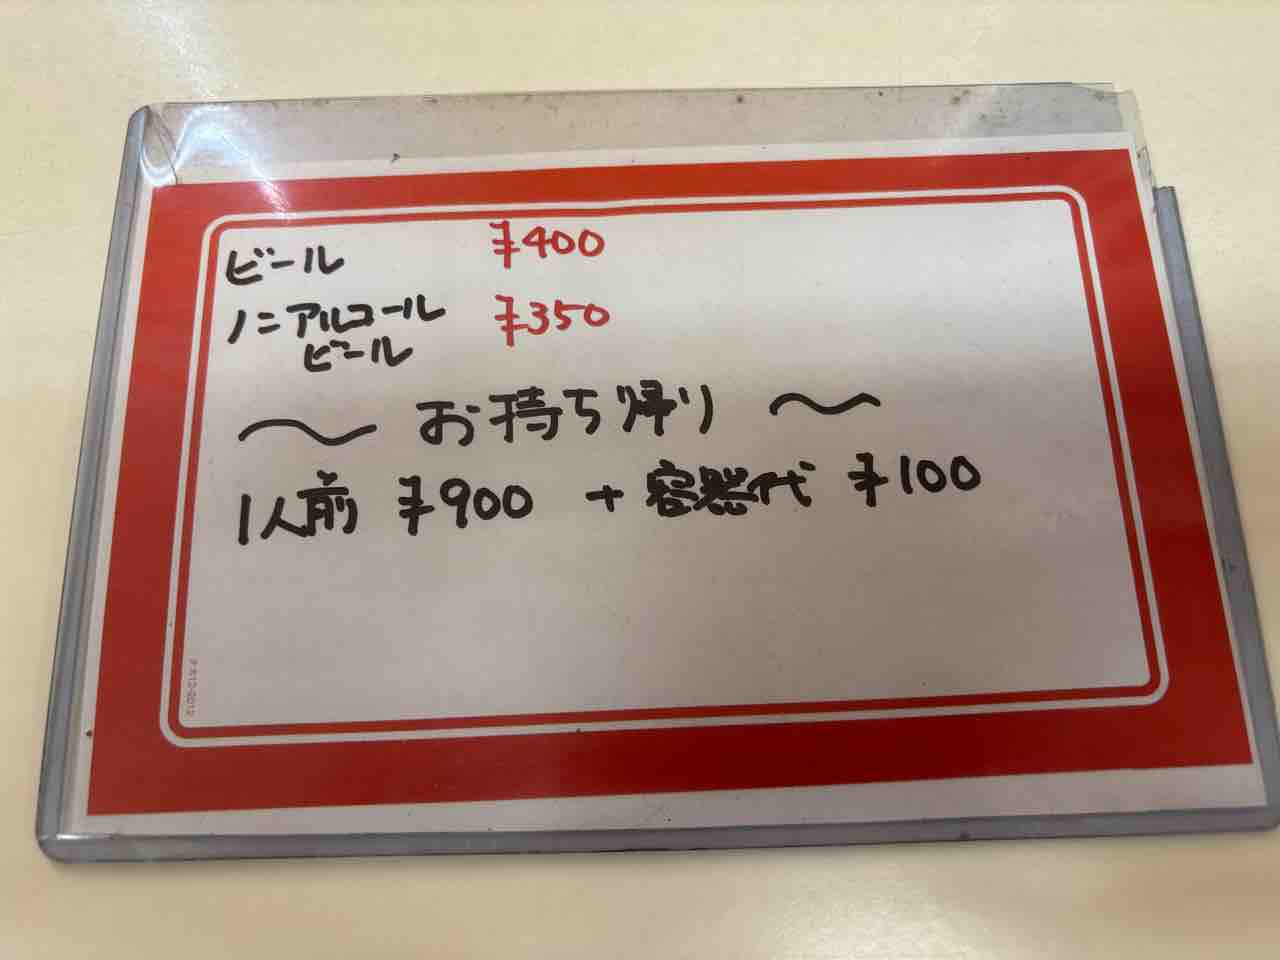 ビール ¥400
ノンアルコール ¥350
ビール
〜 お持ち帰り 〜
1人前 ¥900 + 容器代 ¥100